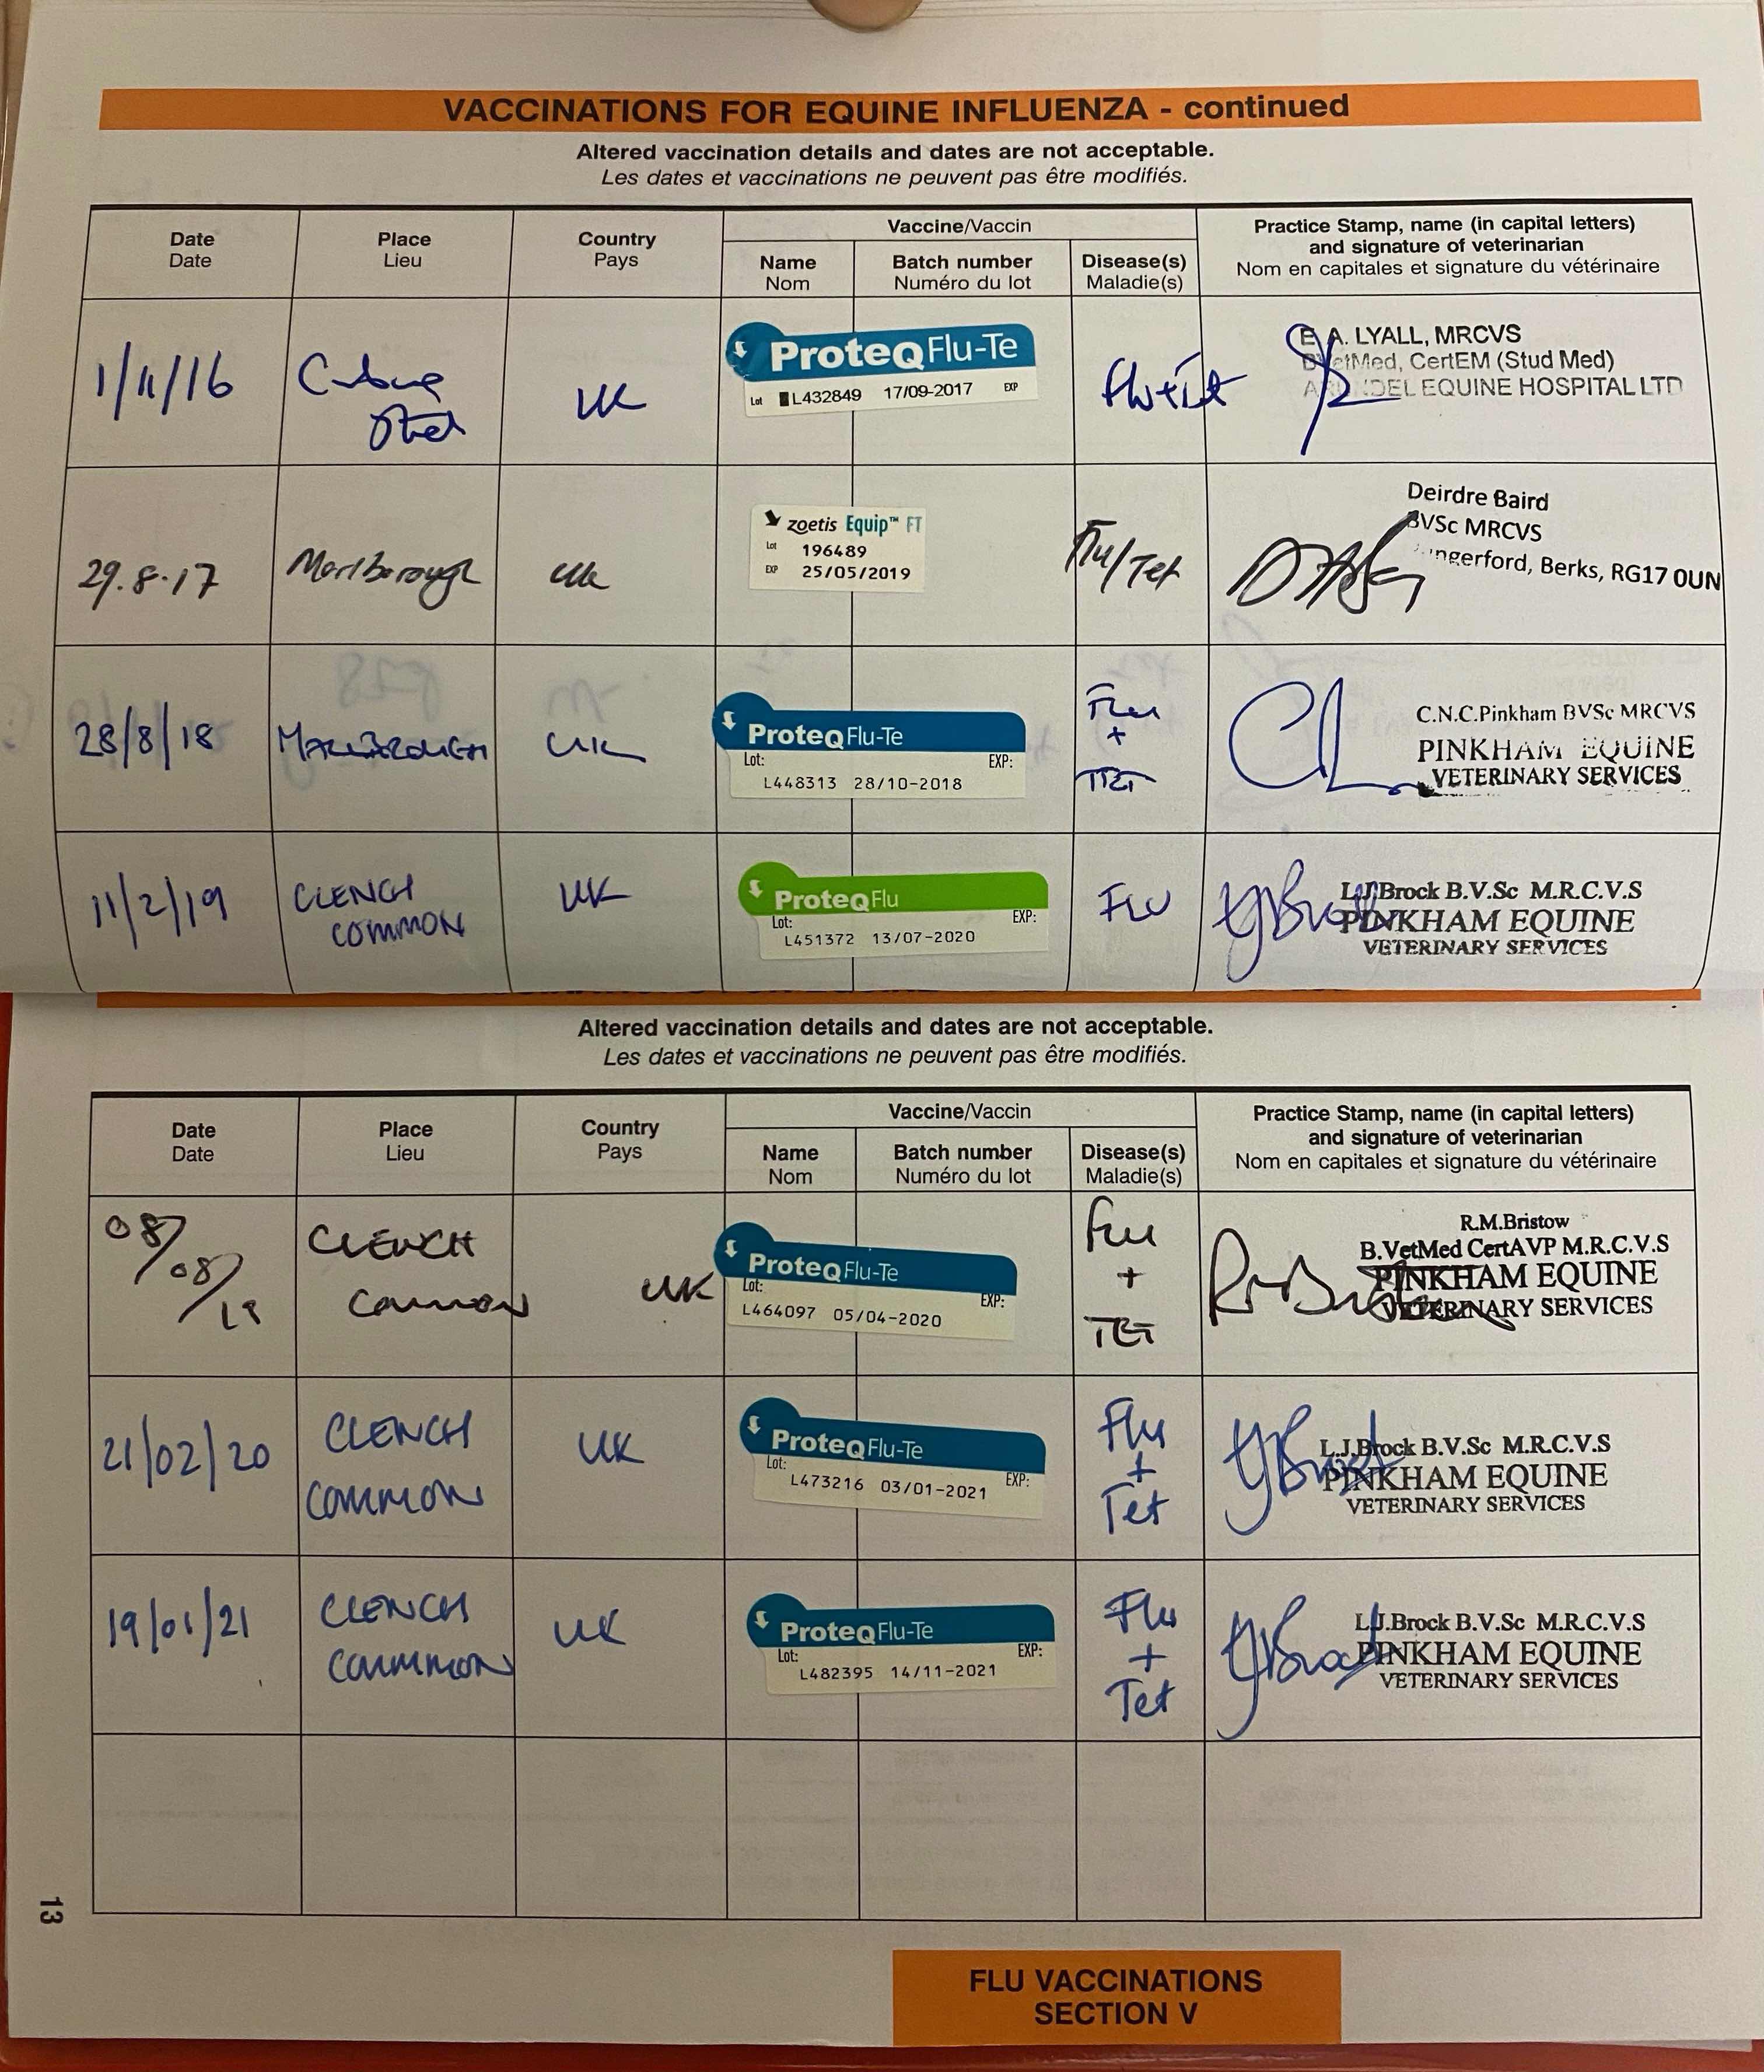 VACCINATIONS FOR EQUINE INFLUENZA - continued
Altered vaccination details and dates are not acceptable.
Les dates et vaccinations ne peuvent pas être modifiés.
Date
Date
Place
Lieu
Country
Pays
Vaccine/Vaccin
Name
Nom
Batch number
Numéro du lot
Disease(s)
Maladie(s)
Practice Stamp, name (in capital letters)
and signature of veterinarian
Nom en capitales et signature du vétérinaire
1/11/16
UK
ProteqFlu-Te
Lot L432849 17/09-2017 EXP
Flu+Tet
E A. LYALL, MRCVS
BVetMed, CertEM (Stud Med)
EQUINE HOSPITAL LTD
29.8.17
Marlborough
UK
zoetis Equip™ FT
Lot 196489
EXP 25/05/2019
Flu/Tet
Deirdre Baird
BVSc MRCVS
ngerford, Berks, RG17 0UN
28/8/18
MARLBOROUGH
UK
ProteqFlu-Te
Lot: EXP:
L448313 28/10-2018
Flu
+
TET
C.N.C.Pinkham BVSc MRCVS
PINKHAM EQUINE
VETERINARY SERVICES
11/2/19
CLENCH
COMMON
UK
ProteqFlu
Lot: EXP:
L451372 13/07-2020
FLU
L.J.Brock B.V.Sc M.R.C.V.S
PINKHAM EQUINE
VETERINARY SERVICES
Altered vaccination details and dates are not acceptable.
Les dates et vaccinations ne peuvent pas être modifiés.
Date
Date
Place
Lieu
Country
Pays
Vaccine/Vaccin
Name
Nom
Batch number
Numéro du lot
Disease(s)
Maladie(s)
Practice Stamp, name (in capital letters)
and signature of veterinarian
Nom en capitales et signature du vétérinaire
08/
08/
19
CLENCH
Common
UK
ProteqFlu-Te
Lot: EXP:
L464097 05/04-2020
Flu
+
TET
R.M.Bristow
B.VetMed CertAVP M.R.C.V.S
PINKHAM EQUINE
VETERINARY SERVICES
21/02/20
CLENCH
COMMON
UK
ProteqFlu-Te
Lot: EXP:
L473216 03/01-2021
Flu
+
Tet
L.J.Brock B.V.Sc M.R.C.V.S
PINKHAM EQUINE
VETERINARY SERVICES
19/01/21
CLENCH
COMMON
UK
ProteqFlu-Te
Lot: EXP:
L482395 14/11-2021
Flu
+
Tet
L.J.Brock B.V.Sc M.R.C.V.S
PINKHAM EQUINE
VETERINARY SERVICES
13
FLU VACCINATIONS
SECTION V